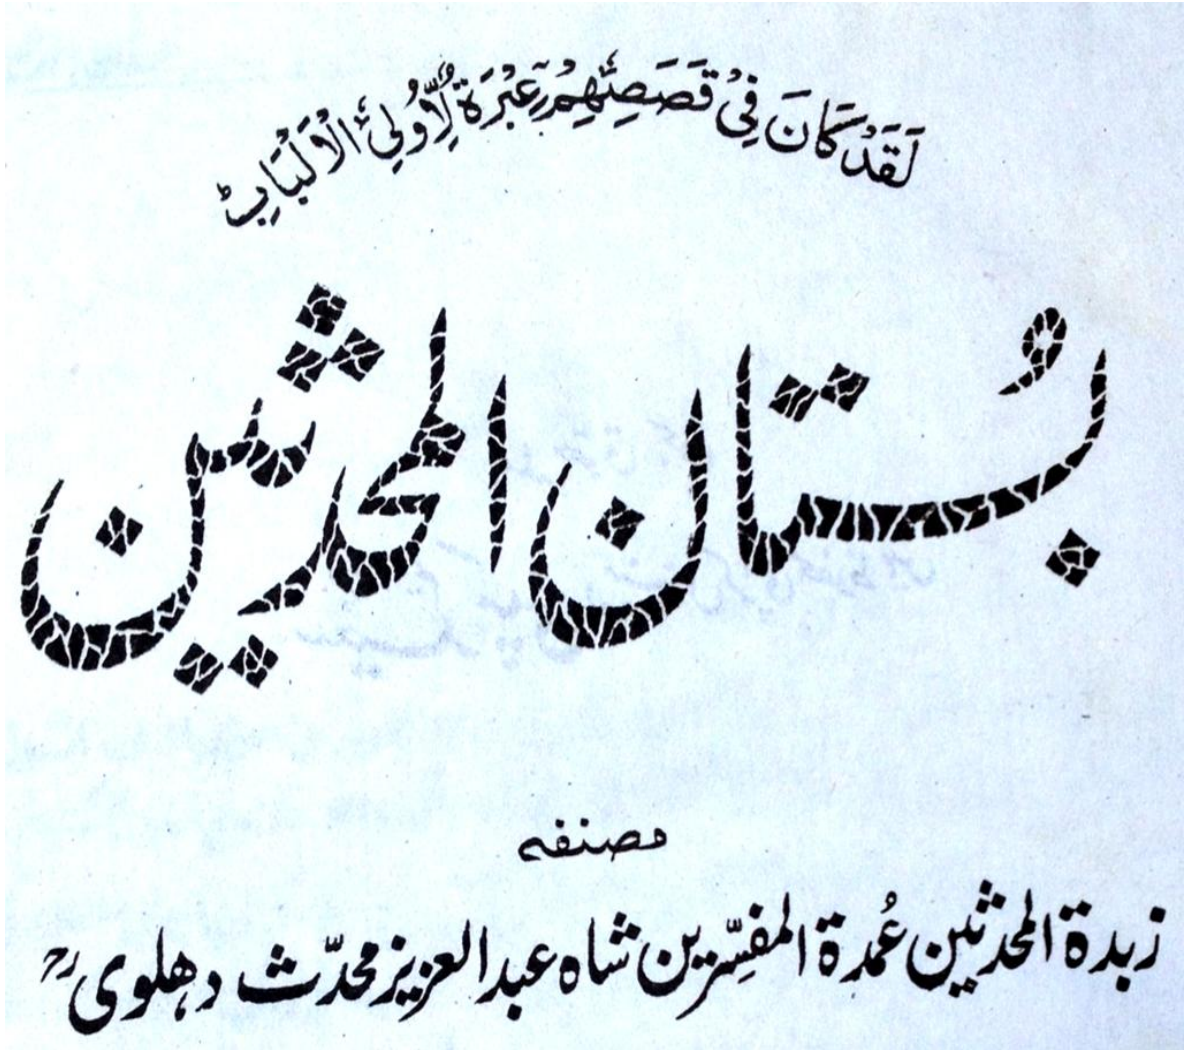 لَقَدْ كَانَ فِیْ قَصَصِهِمْ عِبْرَةٌ لِّاُولِی الْاَلْبَابِ ؕ
بُستان المحدثین
مصنفہ
زبدة المحدثین عُمدة المفسِّرین شاہ عبدالعزیز محدّث دھلوی رح